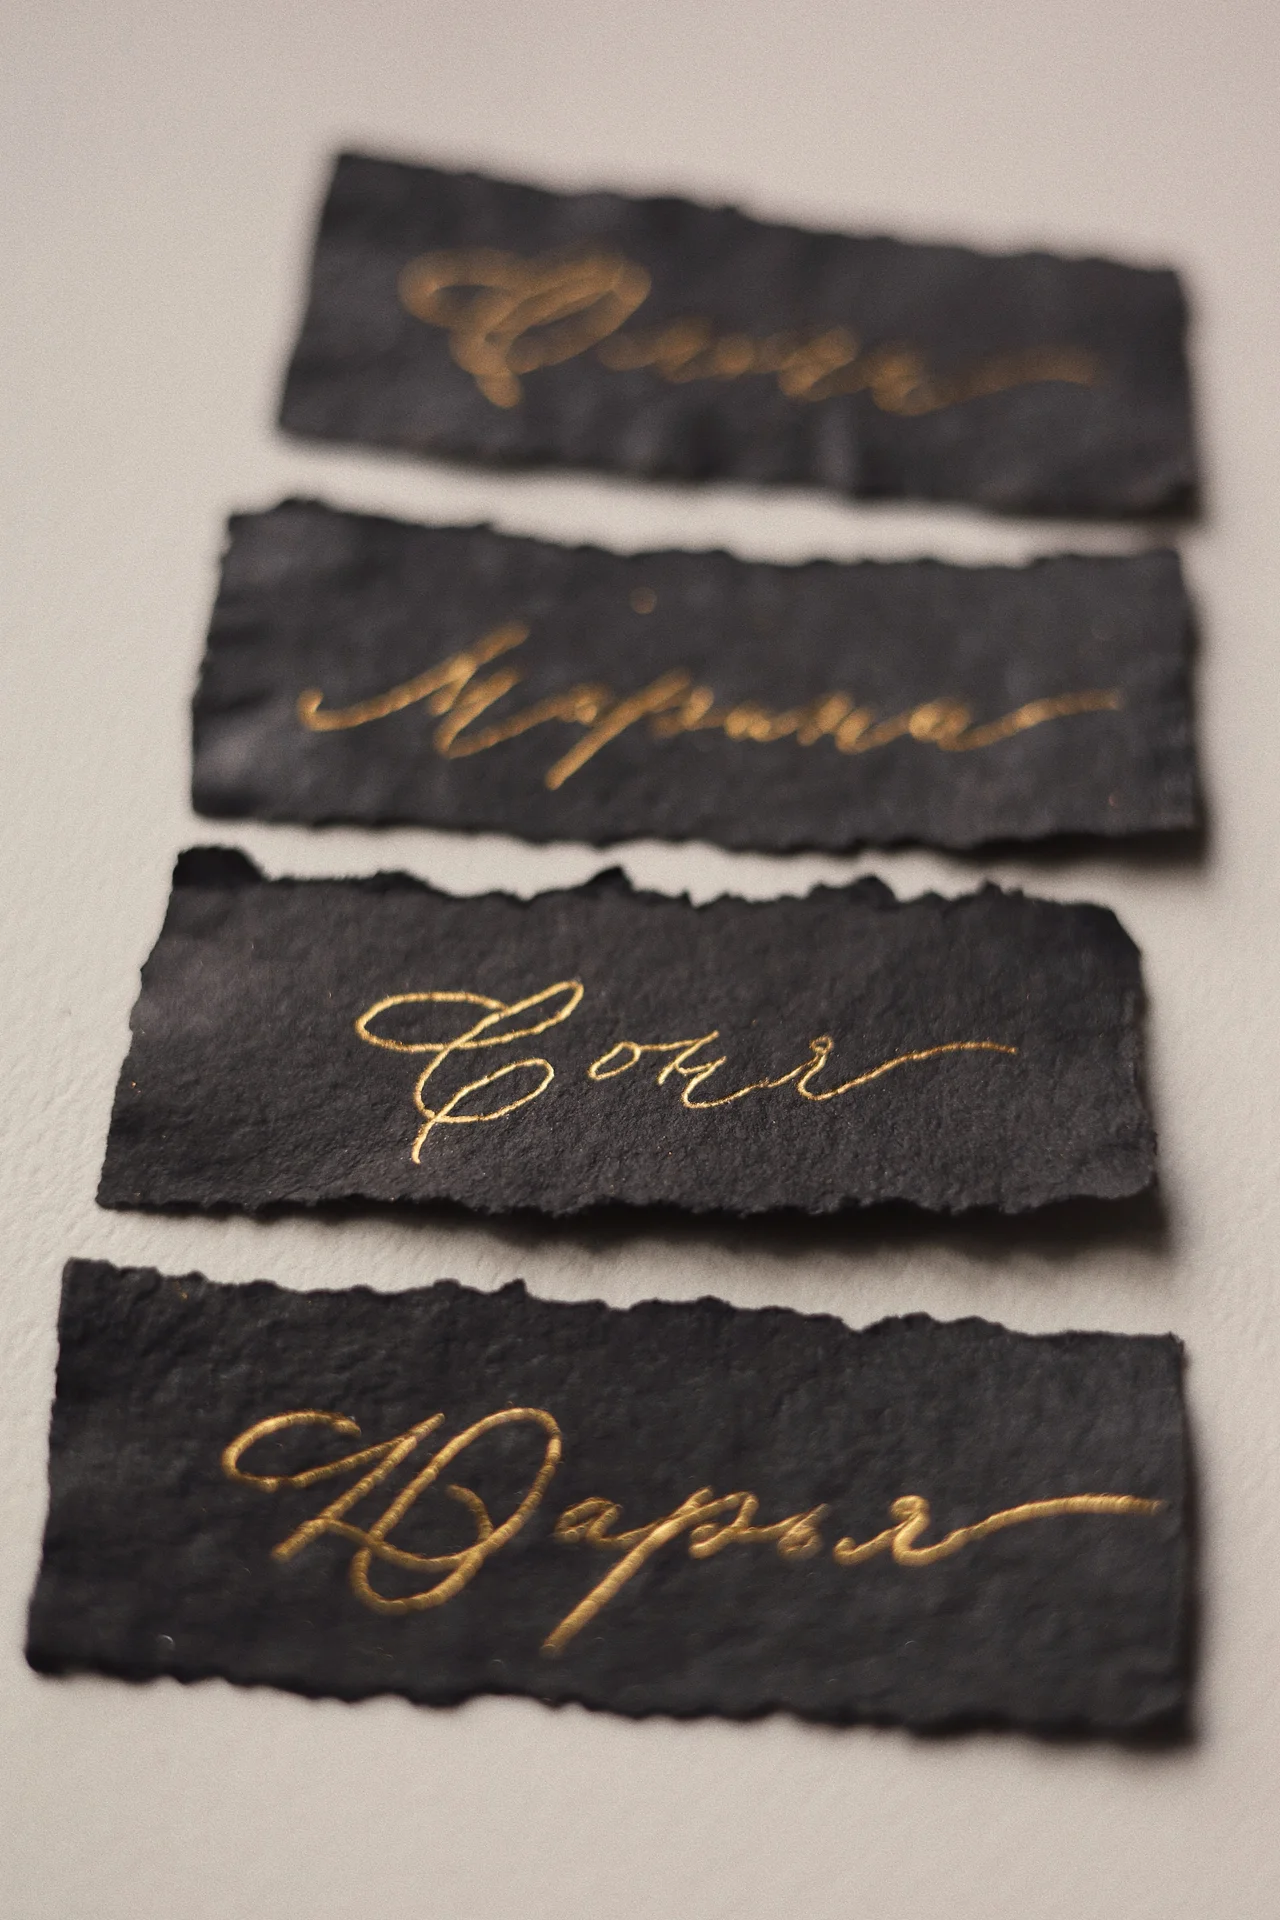 Марина
Соня
Дарья